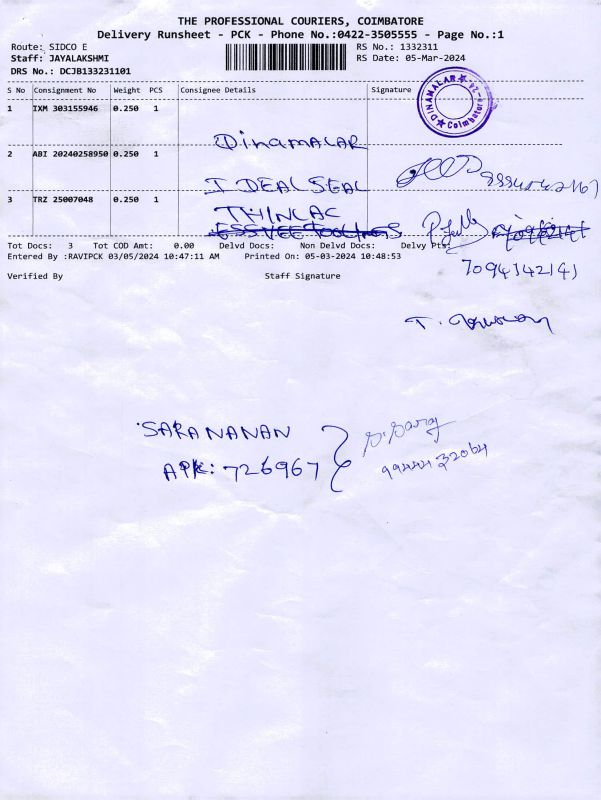 THE PROFESSIONAL COURIERS, COIMBATORE
Delivery Runsheet - PCK - Phone No.:0422-3505555 - Page No.:1
Route: SIDCO E
RS No.: 1332311
Staff: JAYALAKSHMI
RS Date: 05-Mar-2024
DRS No.: DCJB133231101
S No Consignment No Weight PCS Consignee Details Signature
1 IXM 303155946 0.250 1
DINAMALAR
Coimbatore
DINAMALAR
2 ABI 20240258950 0.250 1
I DEAL SEAL
3 TRZ 25007048 0.250 1
THINLAC
Tot Docs: 3 Tot COD Amt: 0.00 Delvd Docs: Non Delvd Docs: Delvy Pts:
Entered By :RAVIPCK 03/05/2024 10:47:11 AM Printed On: 05-03-2024 10:48:53
7094142141
Verified By Staff Signature
SARANANAN
APK: 726967
9944432064